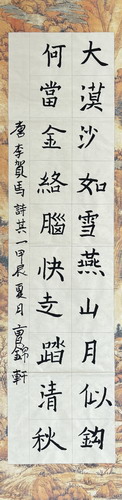 大漠沙如雪燕山月似鈎
何當金絡腦快走踏清秋
唐李賀馬詩其一甲辰夏日曹錦軒